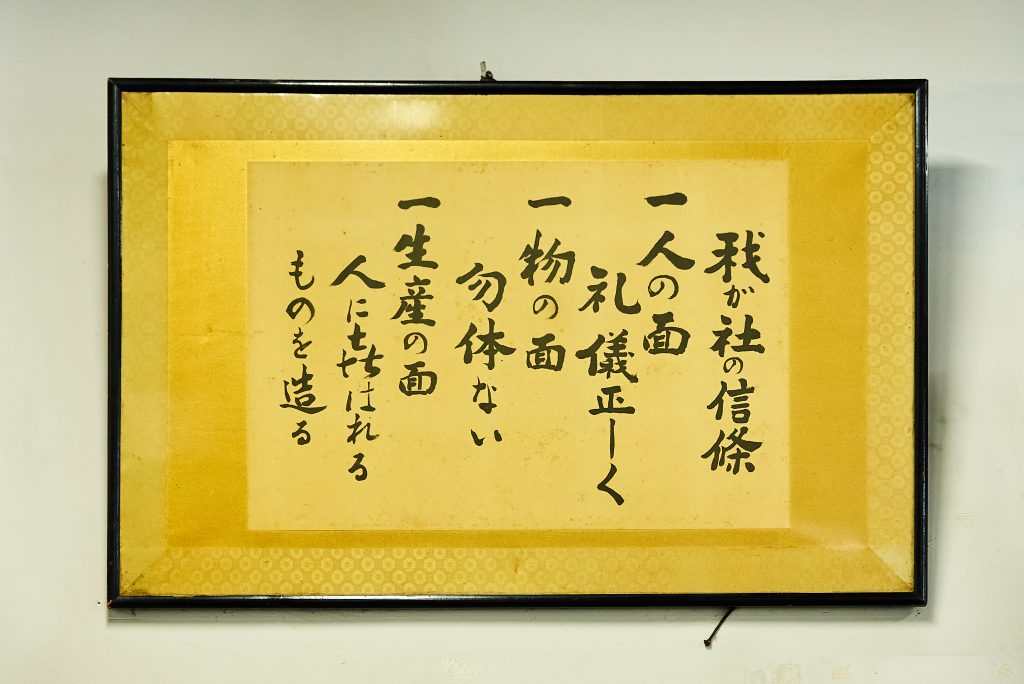 我が社の信條
一人の面
礼儀正しく
一物の面
勿体ない
一生産の面
人に㐂ばれる
ものを造る